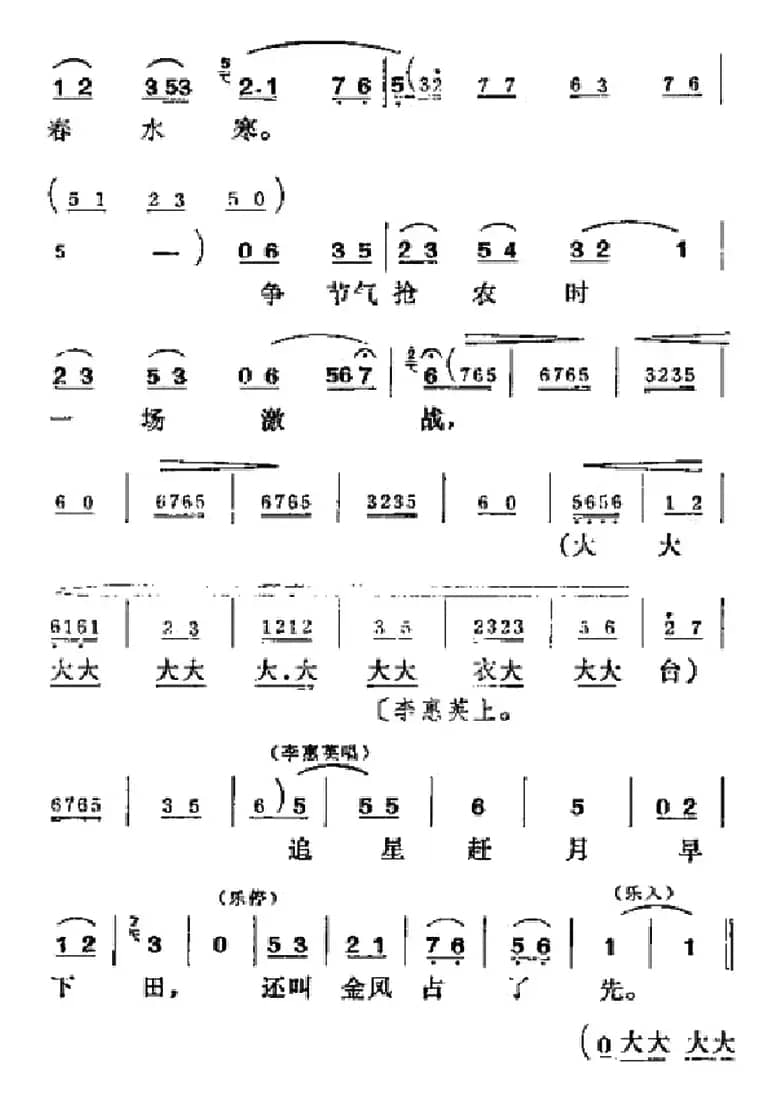 5
1 2 353 2·1 7 6 5 ( 32 7 7 6 3 7 6
春 水 寒。
( 5 1 2 3 5 0 )
5 — ) 0 6 3 5 2 3 5 4 3 2 1
争 节气 抢 农 时
2 3 5 3 0 6 567 2 6 ( 765 6765 3235
一 场 激 战,
6 0 6765 6765 3235 6 0 5656 1 2
(大 大
6161 2 3 1212 3 5 2323 5 6 2 7
大大 大大 大.大 大大 衣大 大大 台)
〔李惠英上。
(李惠英唱)
6765 3 5 6 ) 5 5 5 6 5 0 2
追 星 赶 月 早
(乐停) (乐入)
1 2 2 3 0 5 3 2 1 7 6 5 6 1 1
下 田, 还叫 金凤 占 了 先。
(0 大大 大大